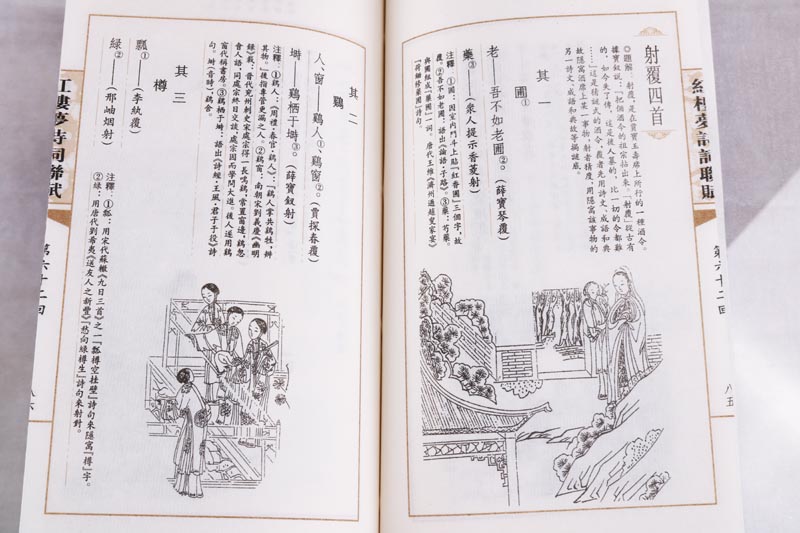 紅樓夢詩詞聯賦
第六十二回
八五
射覆四首
◎題解:射覆,是在賈寶玉壽席上所行的一種酒令。
據寶釵說:「把個酒令的祖宗拈出來,『射覆』從古有
的,如今失了傳,這是後人纂的,比一切的令都難
……」這是猜謎式的酒令,覆者先用詩文、成語和典
故隱寓席上某一事物,射者猜度,用隱寓該事物的
另一詩文、成語和典故等揭謎底。
其一
圃①
老——吾不如老圃②。(薛寶琴覆)
藥③(眾人提示香菱射)
注釋:①圃:因室內門斗上貼『紅香圃』三個字,故
覆。②吾不如老圃:語出《論語·子路》。③藥:芍藥。
與圃組成『藥圃』一詞。唐代王維《濟州過趙叟家宴》
『荷鋤修藥圃』詩句。
其二
鷄
人、窗——鷄人①、鷄窗②。(賈探春覆)
塒——鷄栖于塒③。(薛寶釵射)
注釋:①鷄人:《周禮·春官·鷄人》:『鷄人掌共鷄牲,辨
其物。』後指專管更漏之人。②鷄窗:南朝宋劉義慶《幽明
錄》載:晉代兖州刺史宋處宗得一長鳴鷄,常置窗邊,鷄忽
會人語,同處宗終日交談,處宗因而學問大進。後人遂用鷄
窗代稱書房。③鷄栖于塒:語出《詩經·王風·君子于役》詩
句。塒(音時),鷄舍。
其三
樽
瓢①——(李紈覆)
綠②——(邢岫烟射)
注釋:①瓢:用宋代蘇轍《九日三首》之一『瓢樽空挂壁』詩句來隱寓『樽』字。
②綠:用唐代劉希夷《送友人之新豐》『愁向綠樽生』詩句來射對。
紅樓夢詩詞聯賦
第六十二回
八六